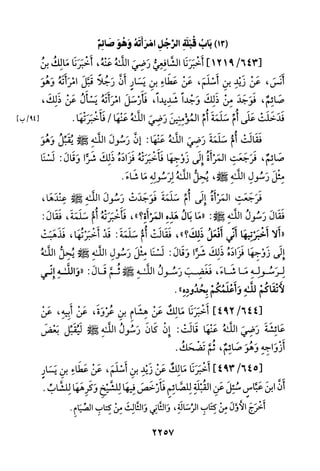 (١٣) بَابُ قُبْلَةِ الرَّجُلِ امْرَأَتَهُ وَهُوَ صَائِمٌ
[١٢١٩/٦٤٣] أَخْبَرَنَا الشَّافِعِيُّ رَضِيَ اللَّهُ عَنْهُ، أَخْبَرَنَا مَالِكُ بنُ
أَنَسٍ، عَنْ زَيْدِ بنِ أَسْلَمَ، عَنْ عَطَاءِ بنِ يَسَارٍ أَنَّ رَجُلاً قَبَّلَ امْرَأَتَهُ وَهُوَ
صَائِمٌ، فَوَجَدَ مِنْ ذَلِكَ وَجْداً شَدِيداً، فَأَرْسَلَ امْرَأَتَهُ تَسْأَلُ عَنْ ذَلِكَ،
فَدَخَلَتْ عَلَى أُمِّ سَلَمَةَ أُمِّ المُؤْمِنِينَ رَضِيَ اللَّهُ عَنْهَا/ فَأَخْبَرَتْهَا. [٩١/ب]
فَقَالَتْ أُمُّ سَلَمَةَ رَضِيَ اللَّهُ عَنْهَا: إِنَّ رَسُولَ اللَّهِ ﷺ يُقَبِّلُ وَهُوَ
صَائِمٌ، فَرَجَعَتِ المَرْأَةُ إِلَى زَوْجِهَا فَأَخْبَرَتْهُ فَزَادَهُ ذَلِكَ شَرًّا وَقَالَ: لَسْنَا
مِثْلَ رَسُولِ اللَّهِ ﷺ، يُحِلُّ اللَّهُ لِرَسُولِهِ مَا شَاءَ.
فَرَجَعَتِ المَرْأَةُ إِلَى أُمِّ سَلَمَةَ فَوَجَدَتْ رَسُولَ اللَّهِ ﷺ عِنْدَهَا،
فَقَالَ رَسُولُ اللَّهِ ﷺ: «مَا بَالُ هَذِهِ المَرْأَةِ؟»، فَأَخْبَرَتْهُ أُمُّ سَلَمَةَ، فَقَالَ:
«أَلَا أَخْبَرْتِيهَا أَنِّي أَفْعَلُ ذَلِكَ؟»، فَقَالَتْ أُمُّ سَلَمَةَ: قَدْ أَخْبَرْتُهَا، فَذَهَبَتْ
إِلَى زَوْجِهَا فَأَخْبَرَتْهُ فَزَادَهُ ذَلِكَ شَرًّا وَقَالَ: لَسْنَا مِثْلَ رَسُولِ اللَّهِ ﷺ يُحِلُّ اللَّهُ
لِرَسُولِهِ مَا شَاءَ، فَغَضِبَ رَسُولُ اللَّهِ ﷺ ثُمَّ قَالَ: «وَاللَّهِ إِنِّي
لَأَتْقَاكُمْ لِلَّهِ وَلَأَعْلَمُكُمْ بِحُدُودِهِ».
[٤٩٢/٦٤٤] أَخْبَرَنَا مَالِكٌ عَنْ هِشَامِ بنِ عُرْوَةَ، عَنْ أَبِيهِ، عَنْ
عَائِشَةَ رَضِيَ اللَّهُ عَنْهَا قَالَتْ: إِنْ كَانَ رَسُولُ اللَّهِ ﷺ لَيُقَبِّلُ بَعْضَ
أَزْوَاجِهِ وَهُوَ صَائِمٌ، ثُمَّ تَضْحَكُ.
[٤٩٣/٦٤٥] أَخْبَرَنَا مَالِكٌ عَنْ زَيْدِ بنِ أَسْلَمَ، عَنْ عَطَاءِ بنِ يَسَارٍ
أَنَّ ابنَ عَبَّاسٍ سُئِلَ عَنِ القُبْلَةِ لِلصَّائِمِ فَأَرْخَصَ فِيهَا لِلشَّيْخِ وَكَرِهَهَا لِلشَّابِّ.
أَخْرَجَ الأَوَّلَ مِنْ كِتَابِ الرِّسَالَةِ، وَالثَّانِيَ وَالثَّالِثَ مِنْ كِتَابِ الصِّيَامِ.
٢٢٥٧